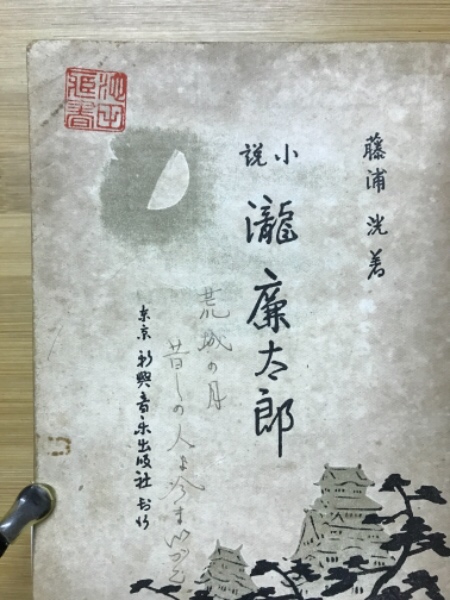 藤浦洸著
小説
瀧廉太郎
荒城の月
昔しの人よ今
東京 新興音楽出版社 刊行
池田
蔵書